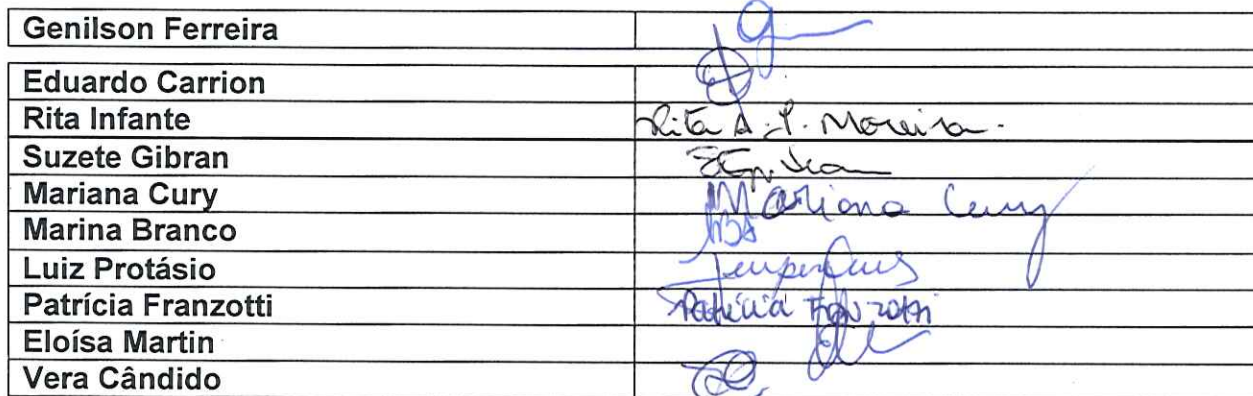 Genilson Ferreira
Eduardo Carrion
Rita Infante Rita A. P. Moreira.
Suzete Gibran
Mariana Cury Mariana Cury
Marina Branco
Luiz Protásio
Patrícia Franzotti Patrícia Franzotti
Eloísa Martin
Vera Cândido